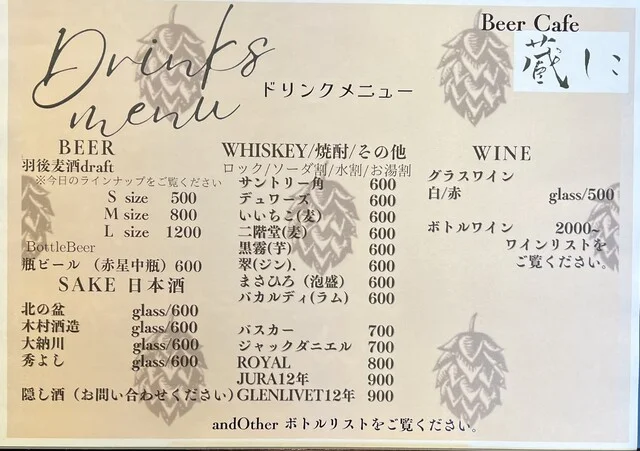 Beer Cafe
蔵しに
Drinks menu
ドリンクメニュー
BEER
羽後麦酒draft
※今日のラインナップをご覧ください
S size 500
M size 800
L size 1200
BottleBeer
瓶ビール （赤星中瓶）600
SAKE 日本酒
北の盆 glass/600
木村酒造 glass/600
大納川 glass/600
秀よし glass/600
隠し酒（お問い合わせください）
WHISKEY/焼酎/その他
ロック/ソーダ割/水割/お湯割
サントリー角 600
デュワーズ 600
いいちこ(麦) 600
二階堂(麦) 600
黒霧(芋) 600
翠(ジン)、 600
まさひろ（泡盛） 600
バカルディ(ラム) 600
バスカー 700
ジャックダニエル 700
ROYAL 800
JURA12年 900
GLENLIVET12年 900
WINE
グラスワイン
白/赤 glass/500
ボトルワイン 2000~
ワインリストを
ご覧ください。
andOther ボトルリストをご覧ください。